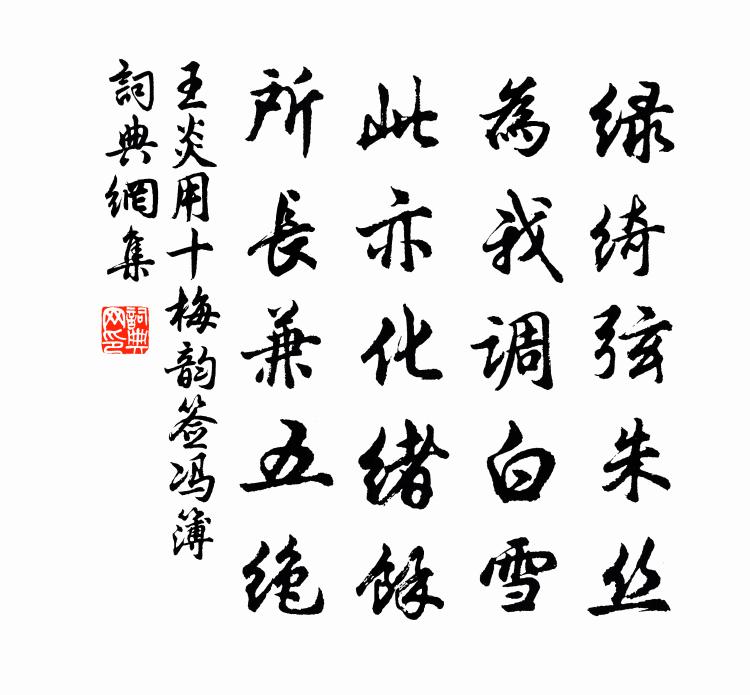 绿绮弦朱丝
為我调白雪
此亦化绪餘
所長兼五绝
王炎用十梅韵签冯簿
詞典網集
詞典网印